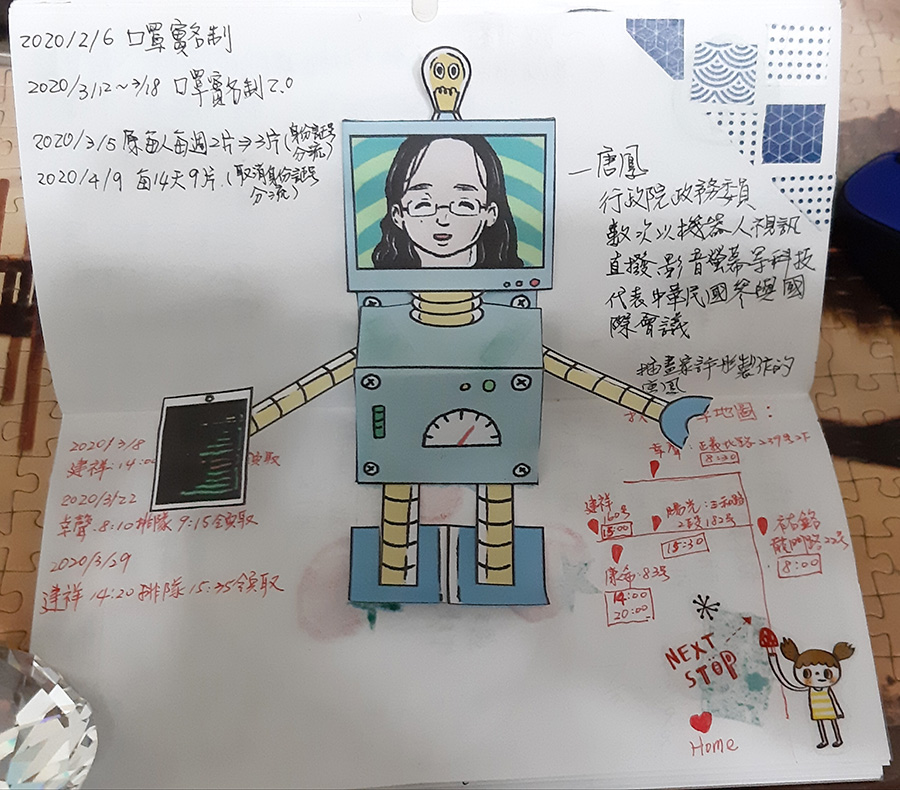 2020/2/6 口罩實名制
2020/3/12~3/18 口罩實名制2.0
2020/3/5 原每人每週2片⇒3片(身份証號
分流)
2020/4/9 每14天9片.(取消身份証號
分流)
唐鳳
行政院政務委員
數次以機器人視訊
直撥.影音螢幕等科技
代表中華民國參與國
際會議
插畫家許彤製作的
唐鳳
2020/3/18
建祥.14:00
領取
2020/3/22
幸聲.8:10排隊 9:15領取
2020/3/29
建祥 14:20排隊 15:35領取
地圖:
正義北路239號2F
8:30
建祥
160号
15:00
陽光:三和路
2段182号
15:30
康希.83号
14:00
20:00
龍門路22号
8:00
NEXT
STOP
Home